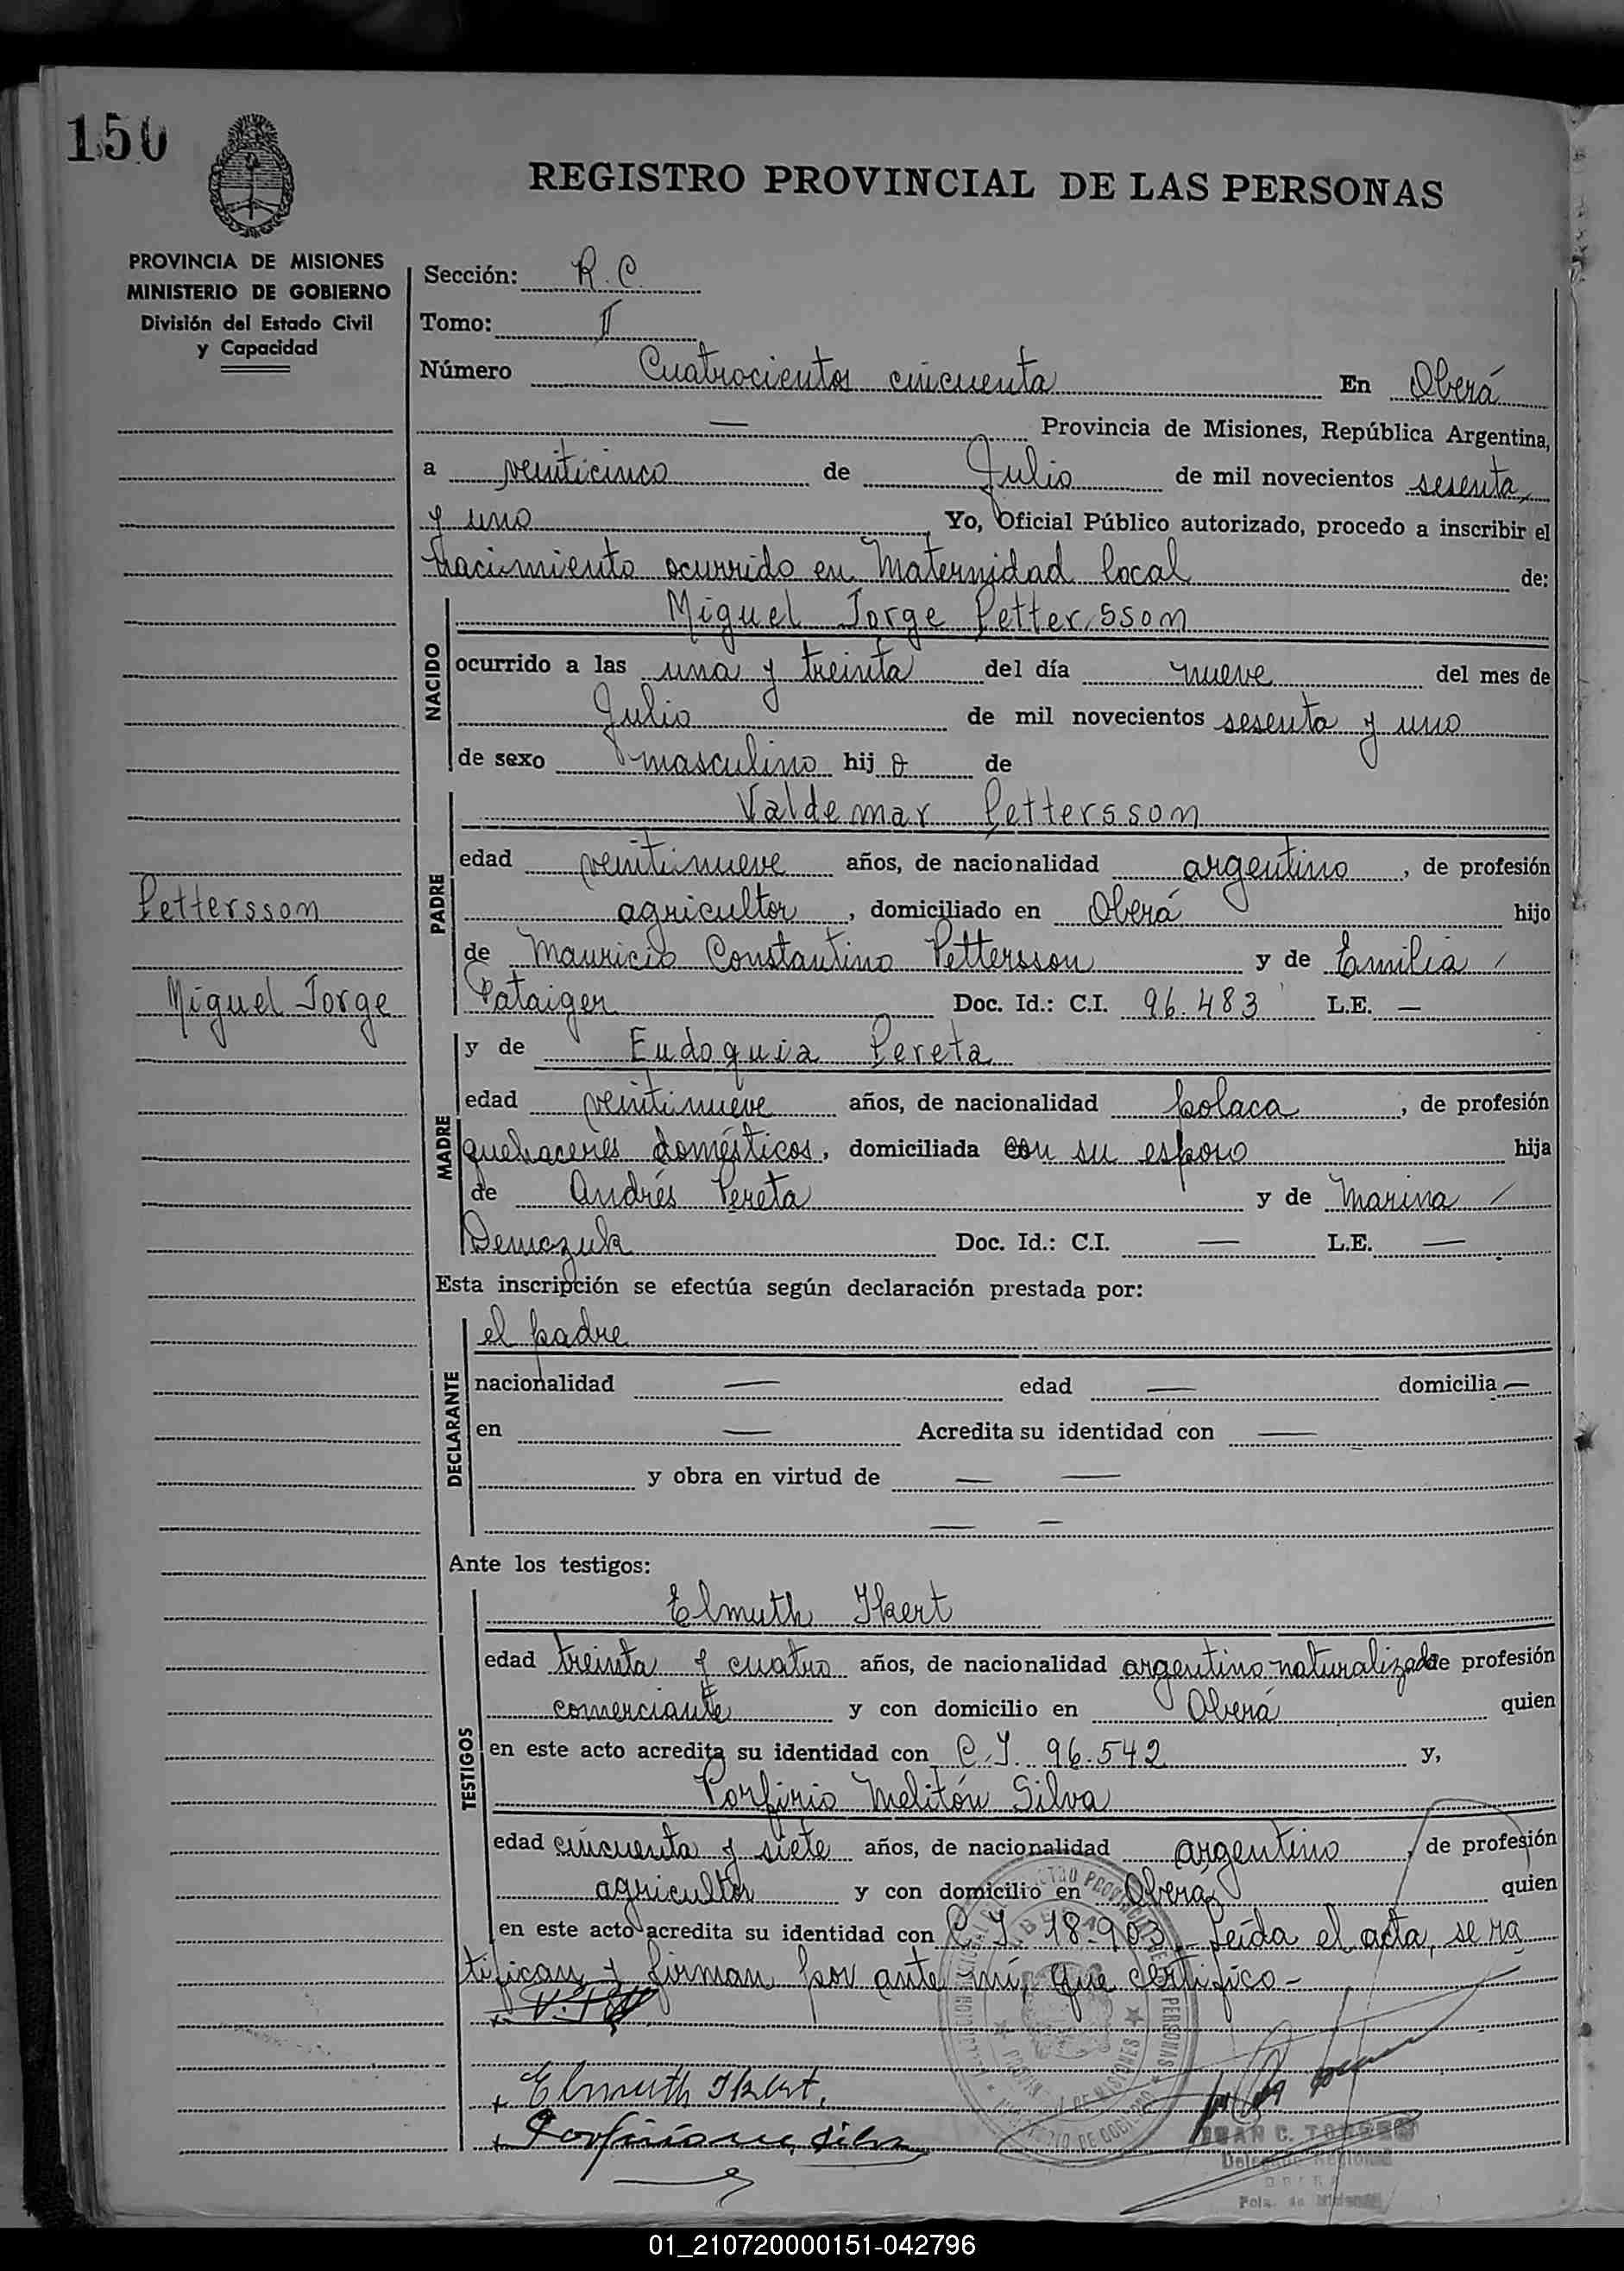 150
REGISTRO PROVINCIAL DE LAS PERSONAS
PROVINCIA DE MISIONES
MINISTERIO DE GOBIERNO
División del Estado Civil
y Capacidad
Sección: R. C.
Tomo: II
Número Cuatrocientos cincuenta En Oberá
— Provincia de Misiones, República Argentina,
a veinticinco de Julio de mil novecientos sesenta
y uno Yo, Oficial Público autorizado, procedo a inscribir el
nacimiento ocurrido en Maternidad local de:
NACIDO
Miguel Jorge Pettersson
ocurrido a las una y treinta del día nueve del mes de
Julio de mil novecientos sesenta y uno
de sexo masculino hij o de
PADRE
Valdemar Pettersson
edad veintinueve años, de nacionalidad argentino, de profesión
agricultor, domiciliado en Oberá hijo
de Mauricio Constantino Pettersson y de Emilia /
Pataiger Doc. Id.: C.I. 96.483 L.E. —
Pettersson
Miguel Jorge
MADRE
y de Eudoquia Pereta
edad veintinueve años, de nacionalidad polaca, de profesión
quehaceres domésticos, domiciliada con su esposo hija
de Andrés Pereta y de Marina /
Demczuk Doc. Id.: C.I. — L.E. —
Esta inscripción se efectúa según declaración prestada por:
DECLARANTE
el padre
nacionalidad — edad — domicilia —
en — Acredita su identidad con —
y obra en virtud de — —
— —
Ante los testigos:
TESTIGOS
Elmuth Ikert
edad treinta y cuatro años, de nacionalidad argentino naturalizado de profesión
comerciante y con domicilio en Oberá quien
en este acto acredita su identidad con C.I. 96.542 y,
Porfirio Melitón Silva
edad cincuenta y siete años, de nacionalidad argentino, de profesión
agricultor y con domicilio en Oberá quien
en este acto acredita su identidad con C.I. 18.903. Leída el acta, se ra
tifican y firman por ante mí, que certifico-
Elmuth Ikert.
Porfirio M. Silva
JUAN C. TORRES
Delegado Regional
OBERA
Pcia. de Misiones
01_210720000151-042796